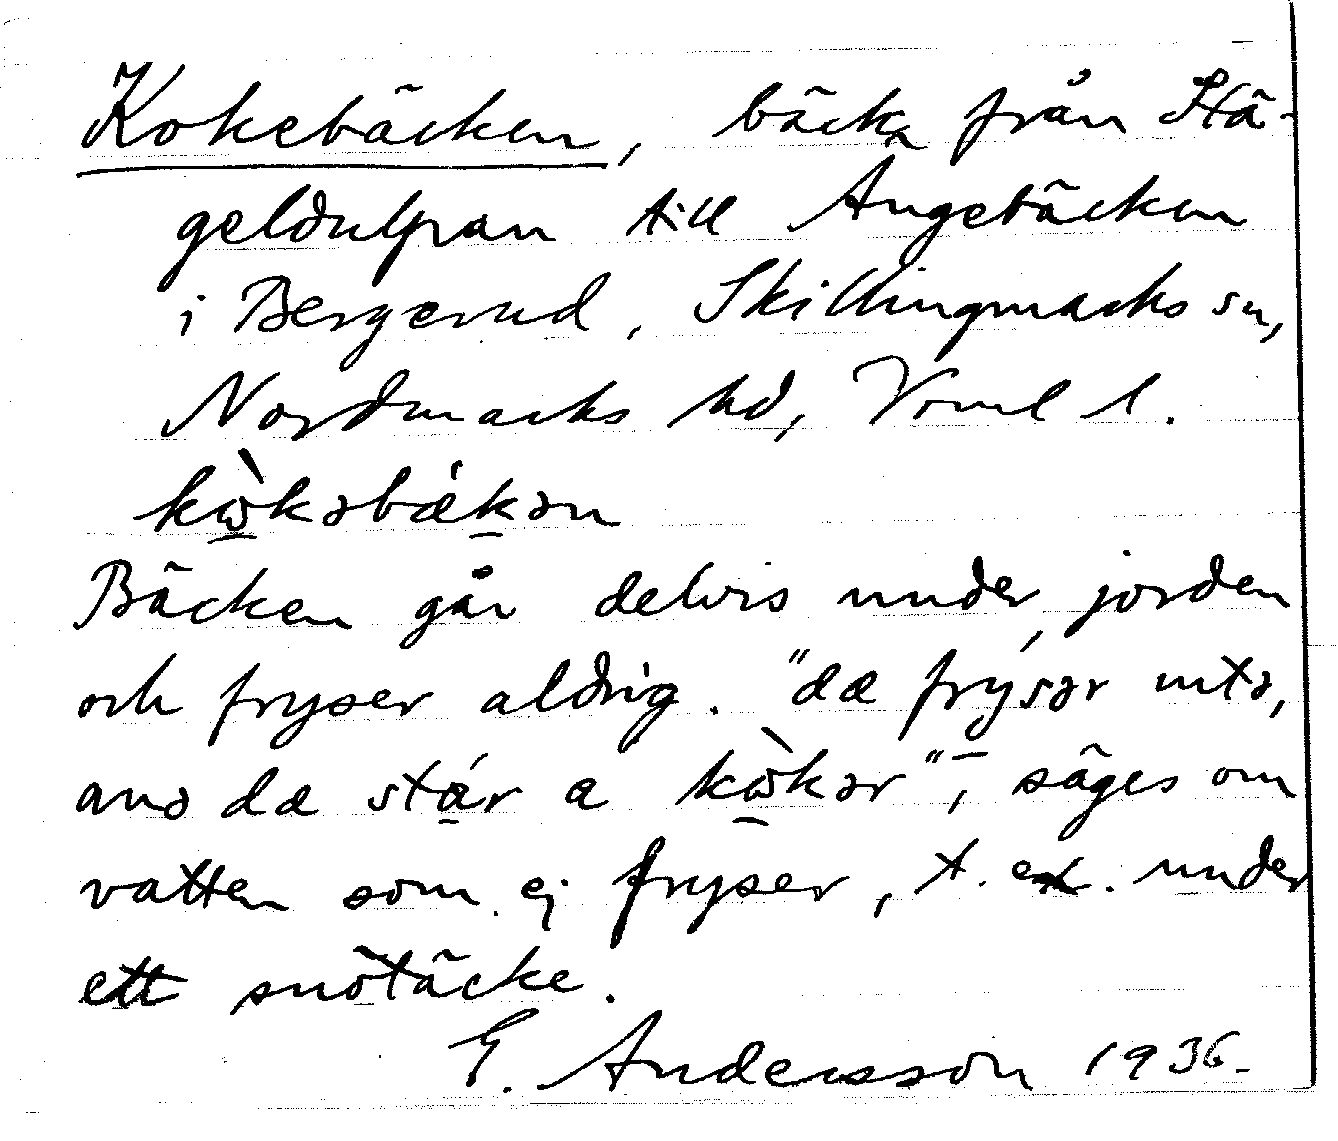 Kokebäcken, bäck från Hä-
geldulpan till Ängebäcken
i Bergerud, Skillingmarks sn,
Nordmarks hd, Vrml l.
kὼkəbækən
Bäcken går delvis under jorden
och fryser aldrig. "dæ frýsər ɩntə,
anə dæ stár a kὼkər", säges om
vatten som ej fryser, t. ex. under
ett snötäcke.
E. Andersson 1936.